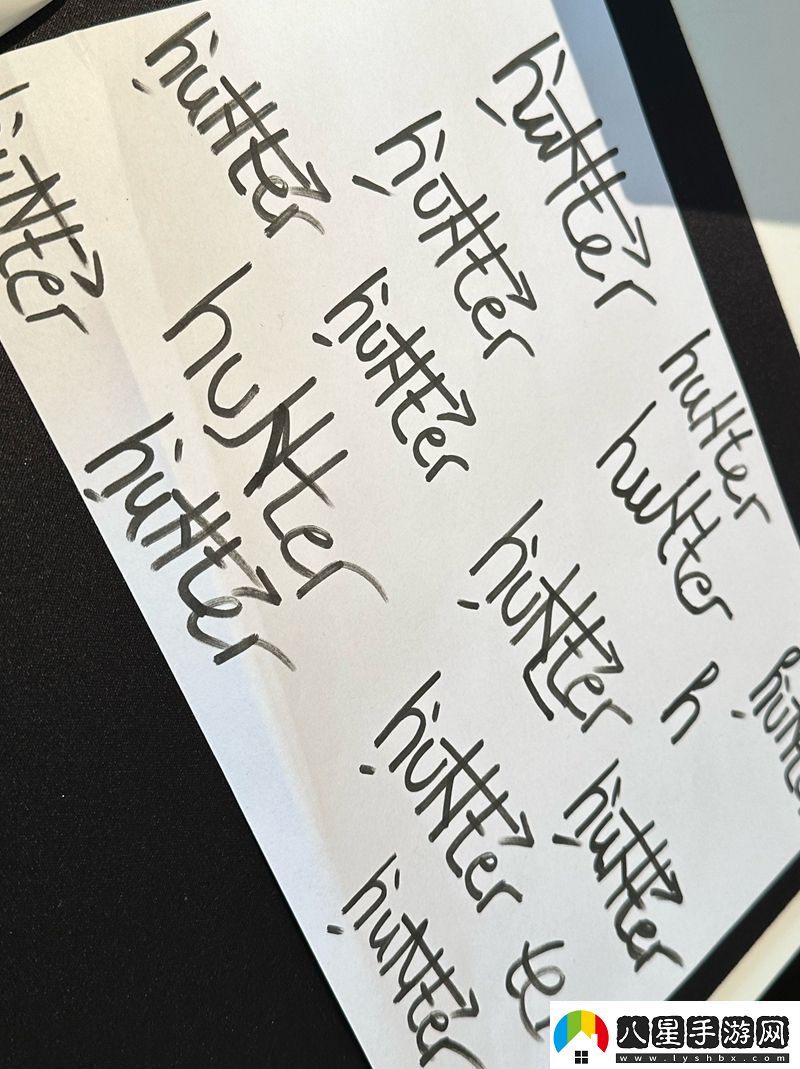 hunter
hunter
hunter
hunter
hunter
hunter
hunter
hunter
hunter
hunter
hunter
h
hunter
hunter
hunter
ter
八星手游网
www.lyshbx.com